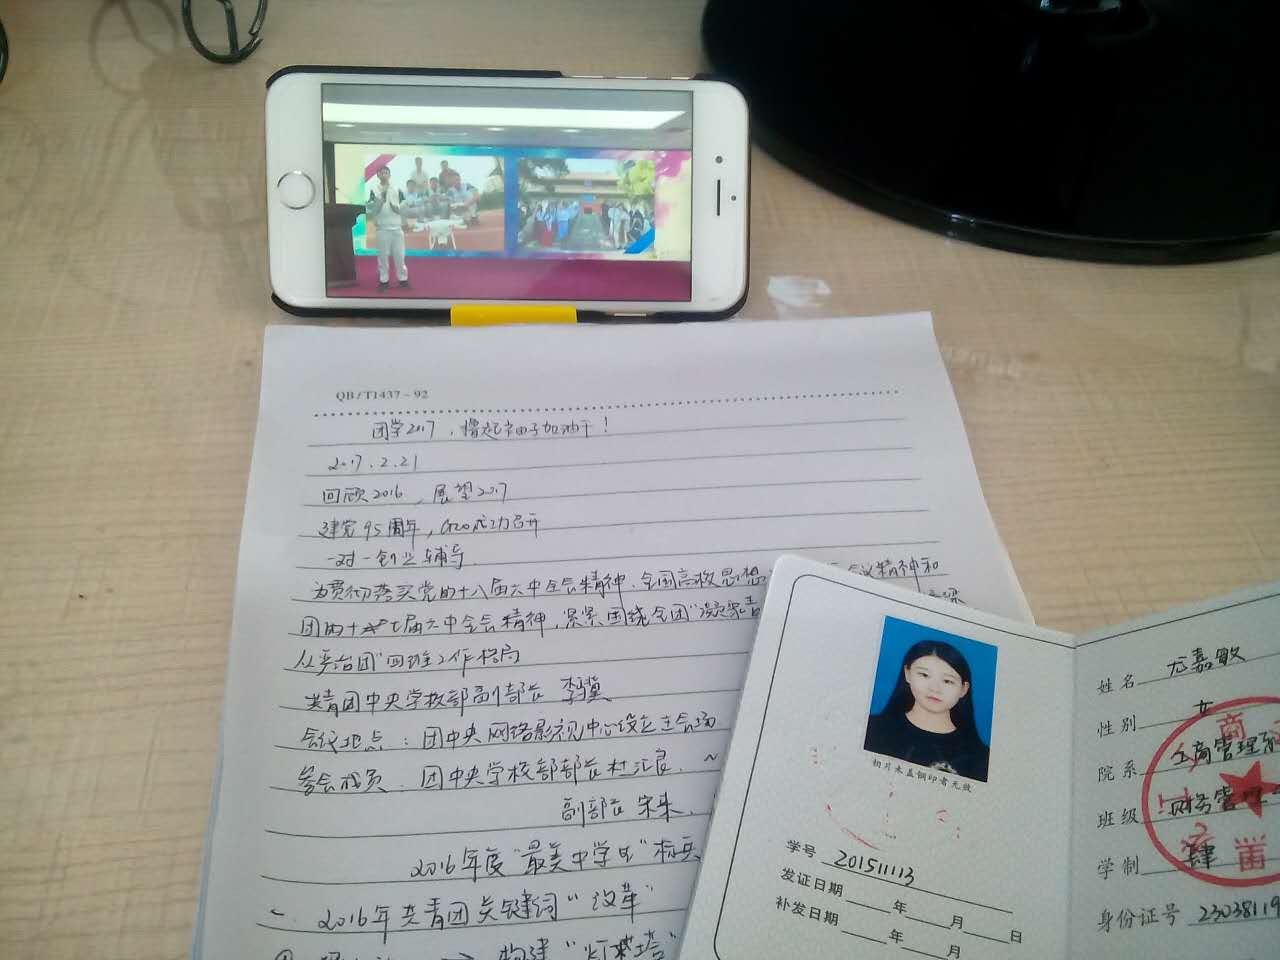 QB/T1437-92
团学2017，撸起袖子加油干！
2017.2.21
回顾2016，展望2017
建党95周年，G20成功召开
一对一创业辅导
为贯彻落实党的十八届六中全会精神、全国高校思想 会议精神和
团的十七届六中全会精神，紧紧围绕全团"凝聚青
从严治团"四维工作格局
共青团中央学校部副部长 李骥
会议地点：团中央网络影视中心设立主会场
参会成员：团中央学校部部长杜汇良、~
副部长 宋来、
2016年度"最美中学生"标兵
一、2016年共青团关键词"改革"
构建"灯塔"
相片未盖钢印者无效
学号 201511113
发证日期 年 月 日
补发日期 年 月
姓名 尤嘉敏
性别 女
院系 工商管理系
班级 财务管理
学制 肆
身份证号 23038119